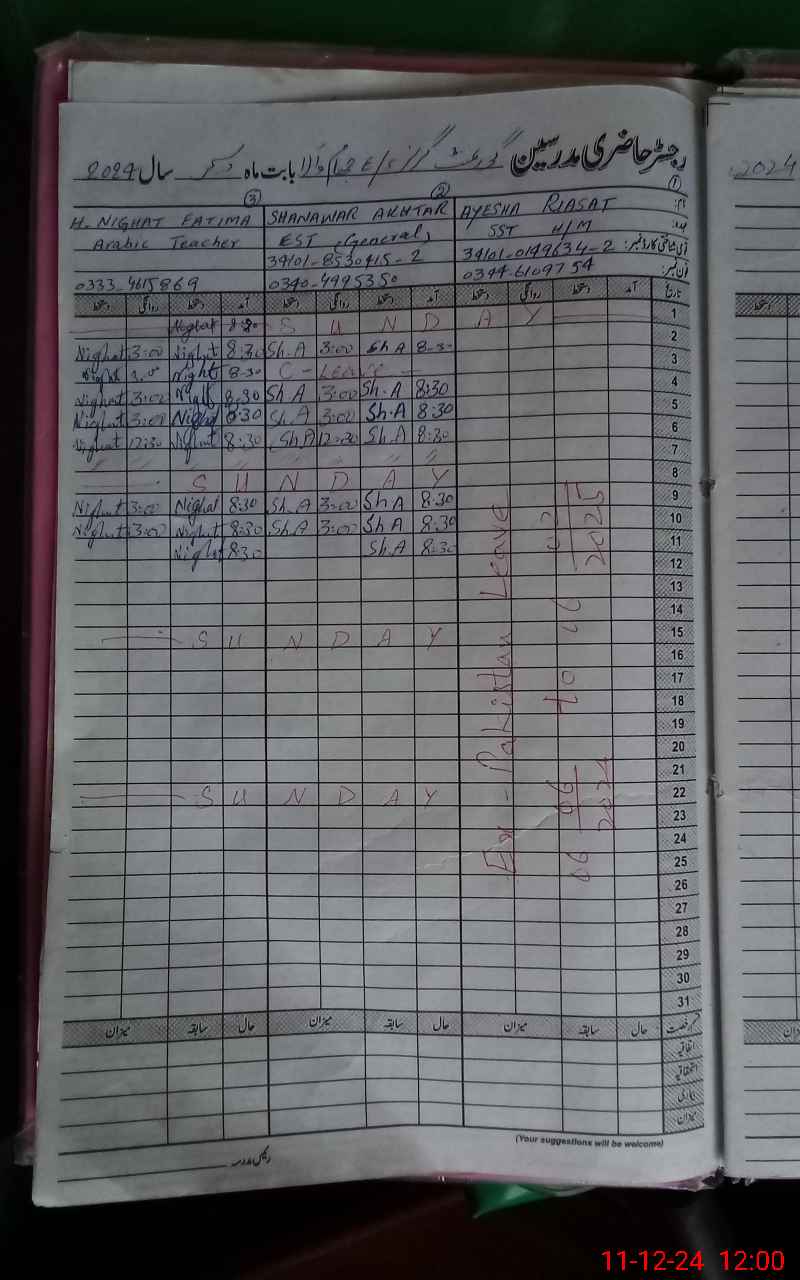 رجسٹر حاضری مدرسین گورنمنٹ گرلز بابت ماہ دسمبر سال 2024
2024
① ② ③
نام: AYESHA RIASAT SHANAWAR AKHTAR H. NIGHAT FATIMA
عہدہ: SST H/M EST (General) Arabic Teacher
قومی شناختی کارڈ نمبر: 34101-0149634-2 34101-8530415-2
فون نمبر: 0344-6109754 0340-4995350 0333-4615869
تاریخ آمد دستخط روانگی دستخط آمد دستخط روانگی دستخط آمد دستخط روانگی دستخط
دستخط
1 S U N D A Y Nighat 8:30
2 8:30 Sh A 3:00 Sh.A 8:30 Nighat 3:00 Nighat
3 C - Leave 8:30 Night
4 8:30 Sh.A 3:00 Sh A 8:30 3:00 Nighat
5 8:30 Sh.A 3:00 Sh.A 8:30 Nighat 3:00 Nighat
6 8:30 Sh.A Sh A 8:30 Nighat 12:30 Nighat
7
8 S U N D A Y
9 8:30 Sh A 3:00 Sh.A 8:30 Nighat 3:00 Nighat
10 8:30 Sh A 3:00 Sh.A 8:30 Nighat 3:00 Nighat
11 8:30 Sh.A 8:30 Nighat
12
13
14
15 S U N D A Y
16
17
18
19
20
21
22 S U N D A Y
23
24
25
26
27
28
29
30
31
Ex-Pakistan Leave
06 06 2024 to 16 2025
قسم رخصت حال سابقہ میزان حال سابقہ میزان حال سابقہ میزان
اتفاقیہ
استحقاقیہ
بیماری
میزان
(Your suggestions will be welcome)
رئیس مدرسہ
11-12-24 12:00